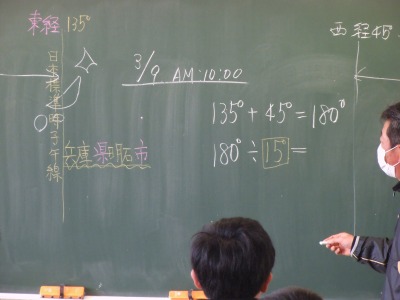 東経135°
日本標準時子午線
兵庫県明石市
3/9 AM:10:00
135°+45°=180°
180°÷15°=
西経45°